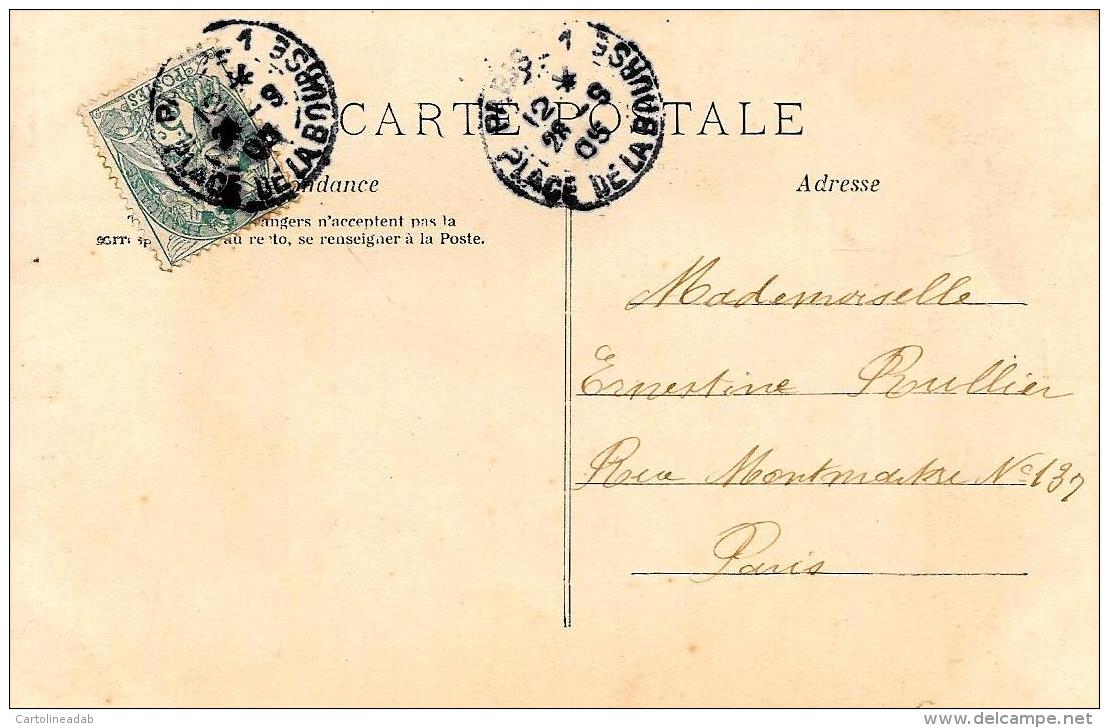 CARTE POSTALE
Adresse
angers n'acceptent pas la
au recto, se renseigner à la Poste.
PARIS 1 PLACE DE LA BOURSE
12
28 -9
05
PLACE DE LA BOURSE
Mademoiselle
Ernestine Rullier
Rue Montmatre No 137
Paris
Cartolineadab
delcampe.net